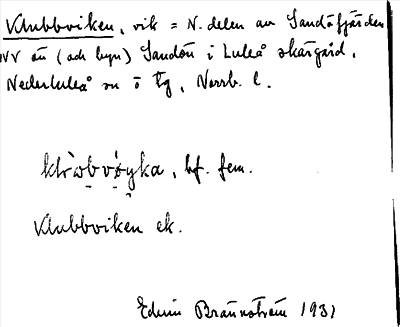 Klubbviken, vik = N. delen av Sandöfjärden
NV om (och byn) Sandön i Luleå skärgård,
Nederluleå sn o tg, Norrb. l.
bf. fem.
Klubbviken ek.
Edvin Brännström 1931